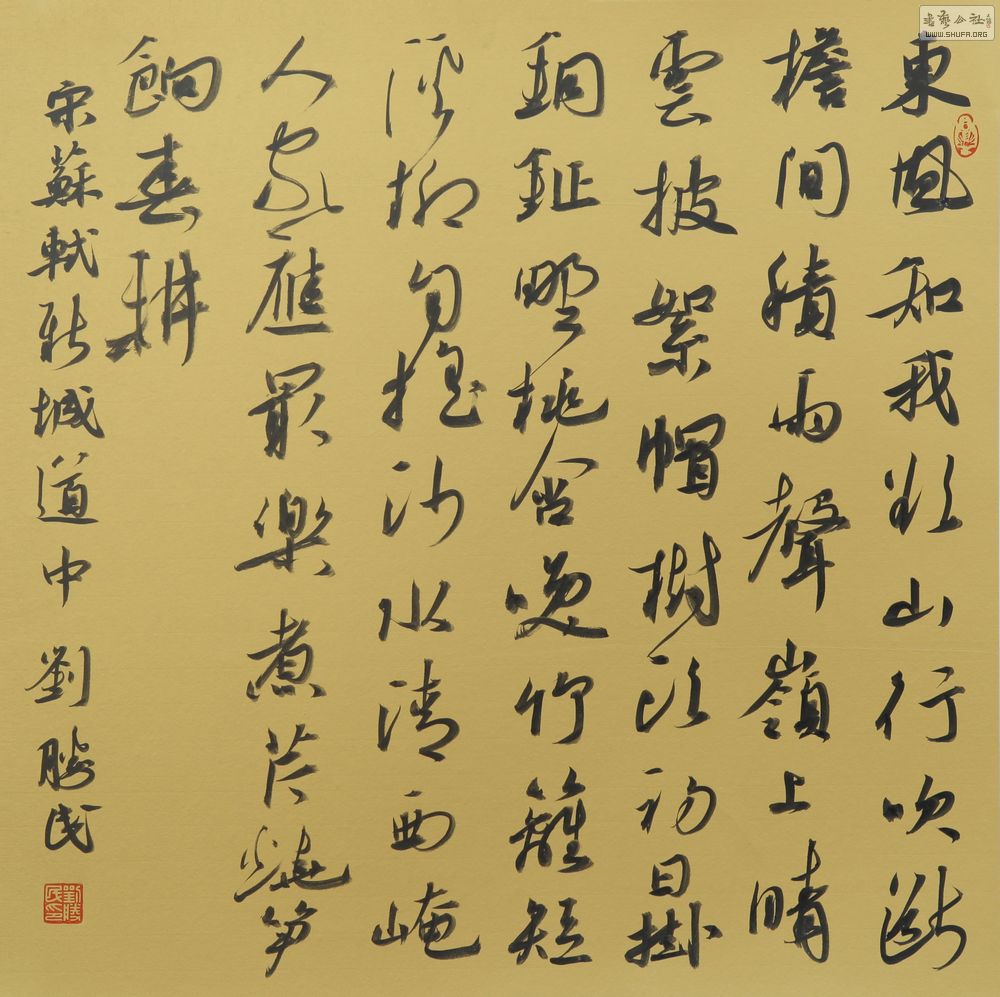 東風知我欲山行吹斷
檐間積雨聲嶺上晴
雲披絮帽樹頭初日掛
銅鉦野桃含咲竹籬短
溪柳自搖沙水清西崦
人家應最樂煮芹燒笋
餉春耕
宋蘇軾新城道中 劉勝民
劉勝民印
書藝公社
WWW.SHUFA.ORG